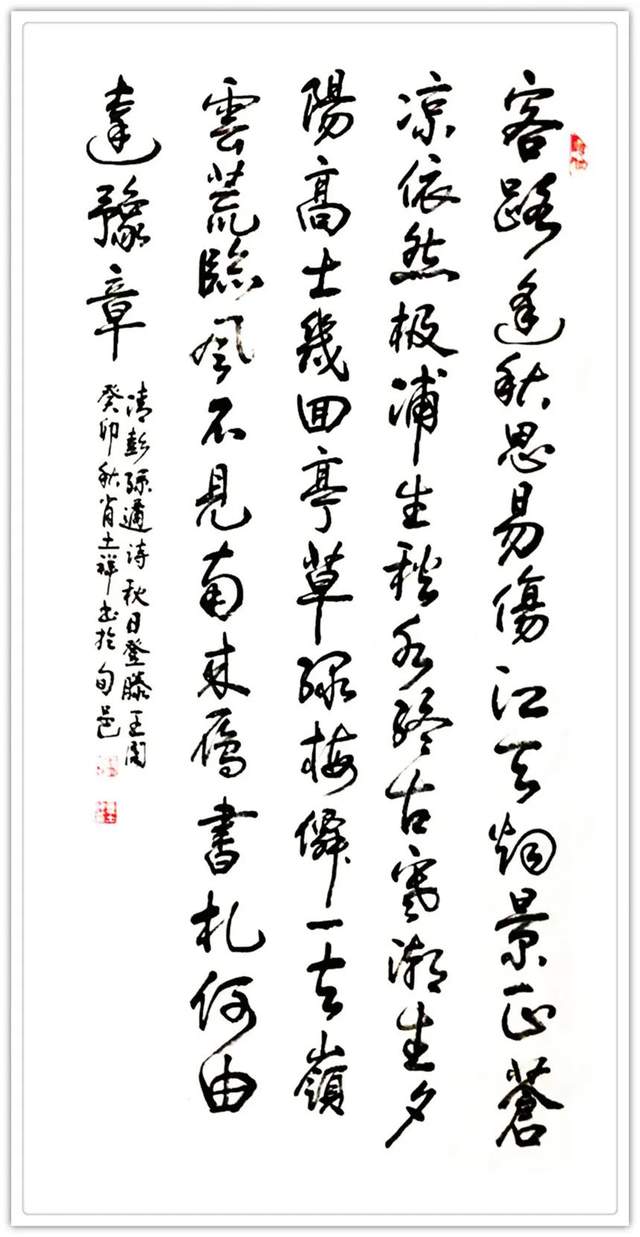 客路逢秋思易傷江天烟景正蒼
凉依然极浦生秋水終古寒潮生夕
陽高士幾回亭草綠梅僊一去嶺
雲荒臨風不見南来鴈書札何由
達豫章
清彭孫遹诗秋日登滕王阁
癸卯秋肖士祥书於旬邑